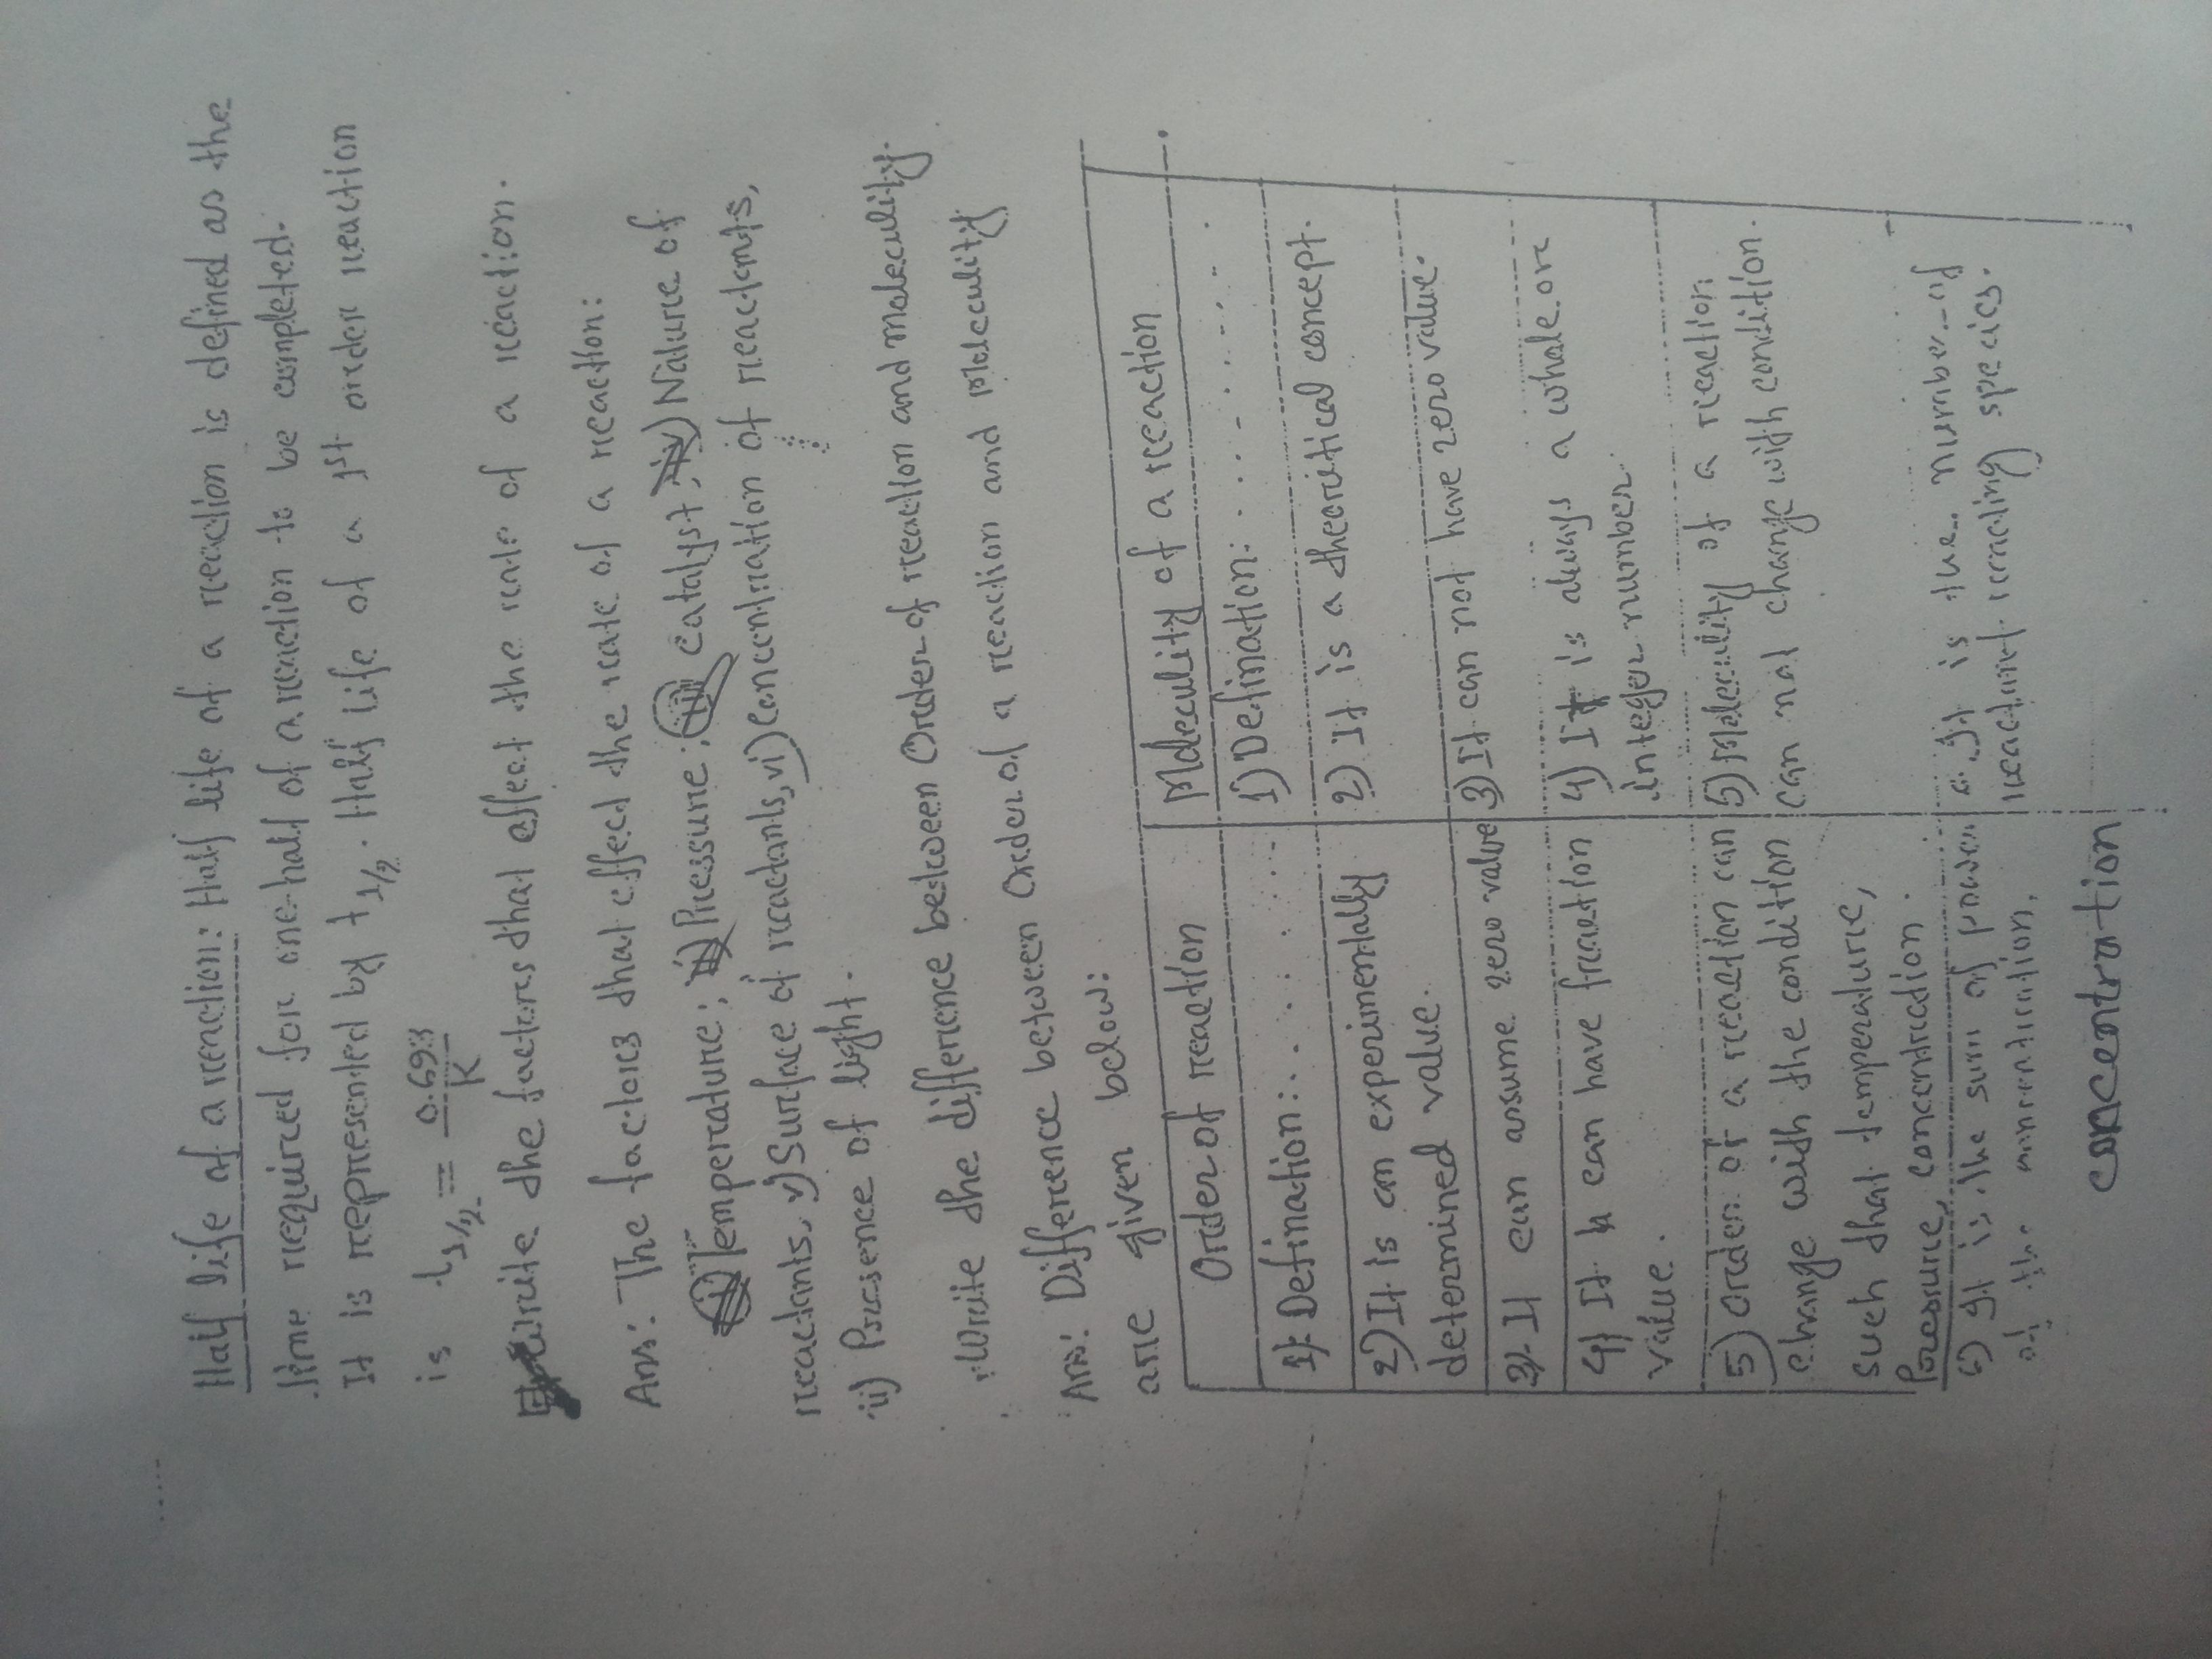 Half life of a reaction: Half life of a reaction is defined as the
time required for one-half of a reaction to be completed.
It is represented by t1/2. Half Life of a 1st order reaction
is t1/2 = 0.693/K
Write the factors that effect the rate of a reaction.
Ans: The factors that effect the rate of a reaction:
i) Temperature; ii) Pressure; iii) Catalyst; iv) Nature of
reactants, v) Surface of reactants, vi) Concentration of reactants,
ii) Presence of light.
Write the difference between Order of reaction and Moleculity.
Ans: Difference between Order of a reaction and Moleculity
are given below:
Order of reaction | Moleculity of a reaction
1) Defination: . . . . . . . | 1) Defination: . . . . . . . . .
2) It is an experimentally | 2) It is a theoritical concept.
determined value.
3) It can assume zero value | 3) It can not have zero value.
4) It can have fraction | 4) It is always a whole or
value. | integer number.
5) Order of a reaction can | 5) Moleculity of a reaction
change with the condition | can not change with condition.
such that temperature,
Pressure, concentration.
6) It is the sum of power | 6. It is the number of
of the concentration. | reactant reacting species.
concentration